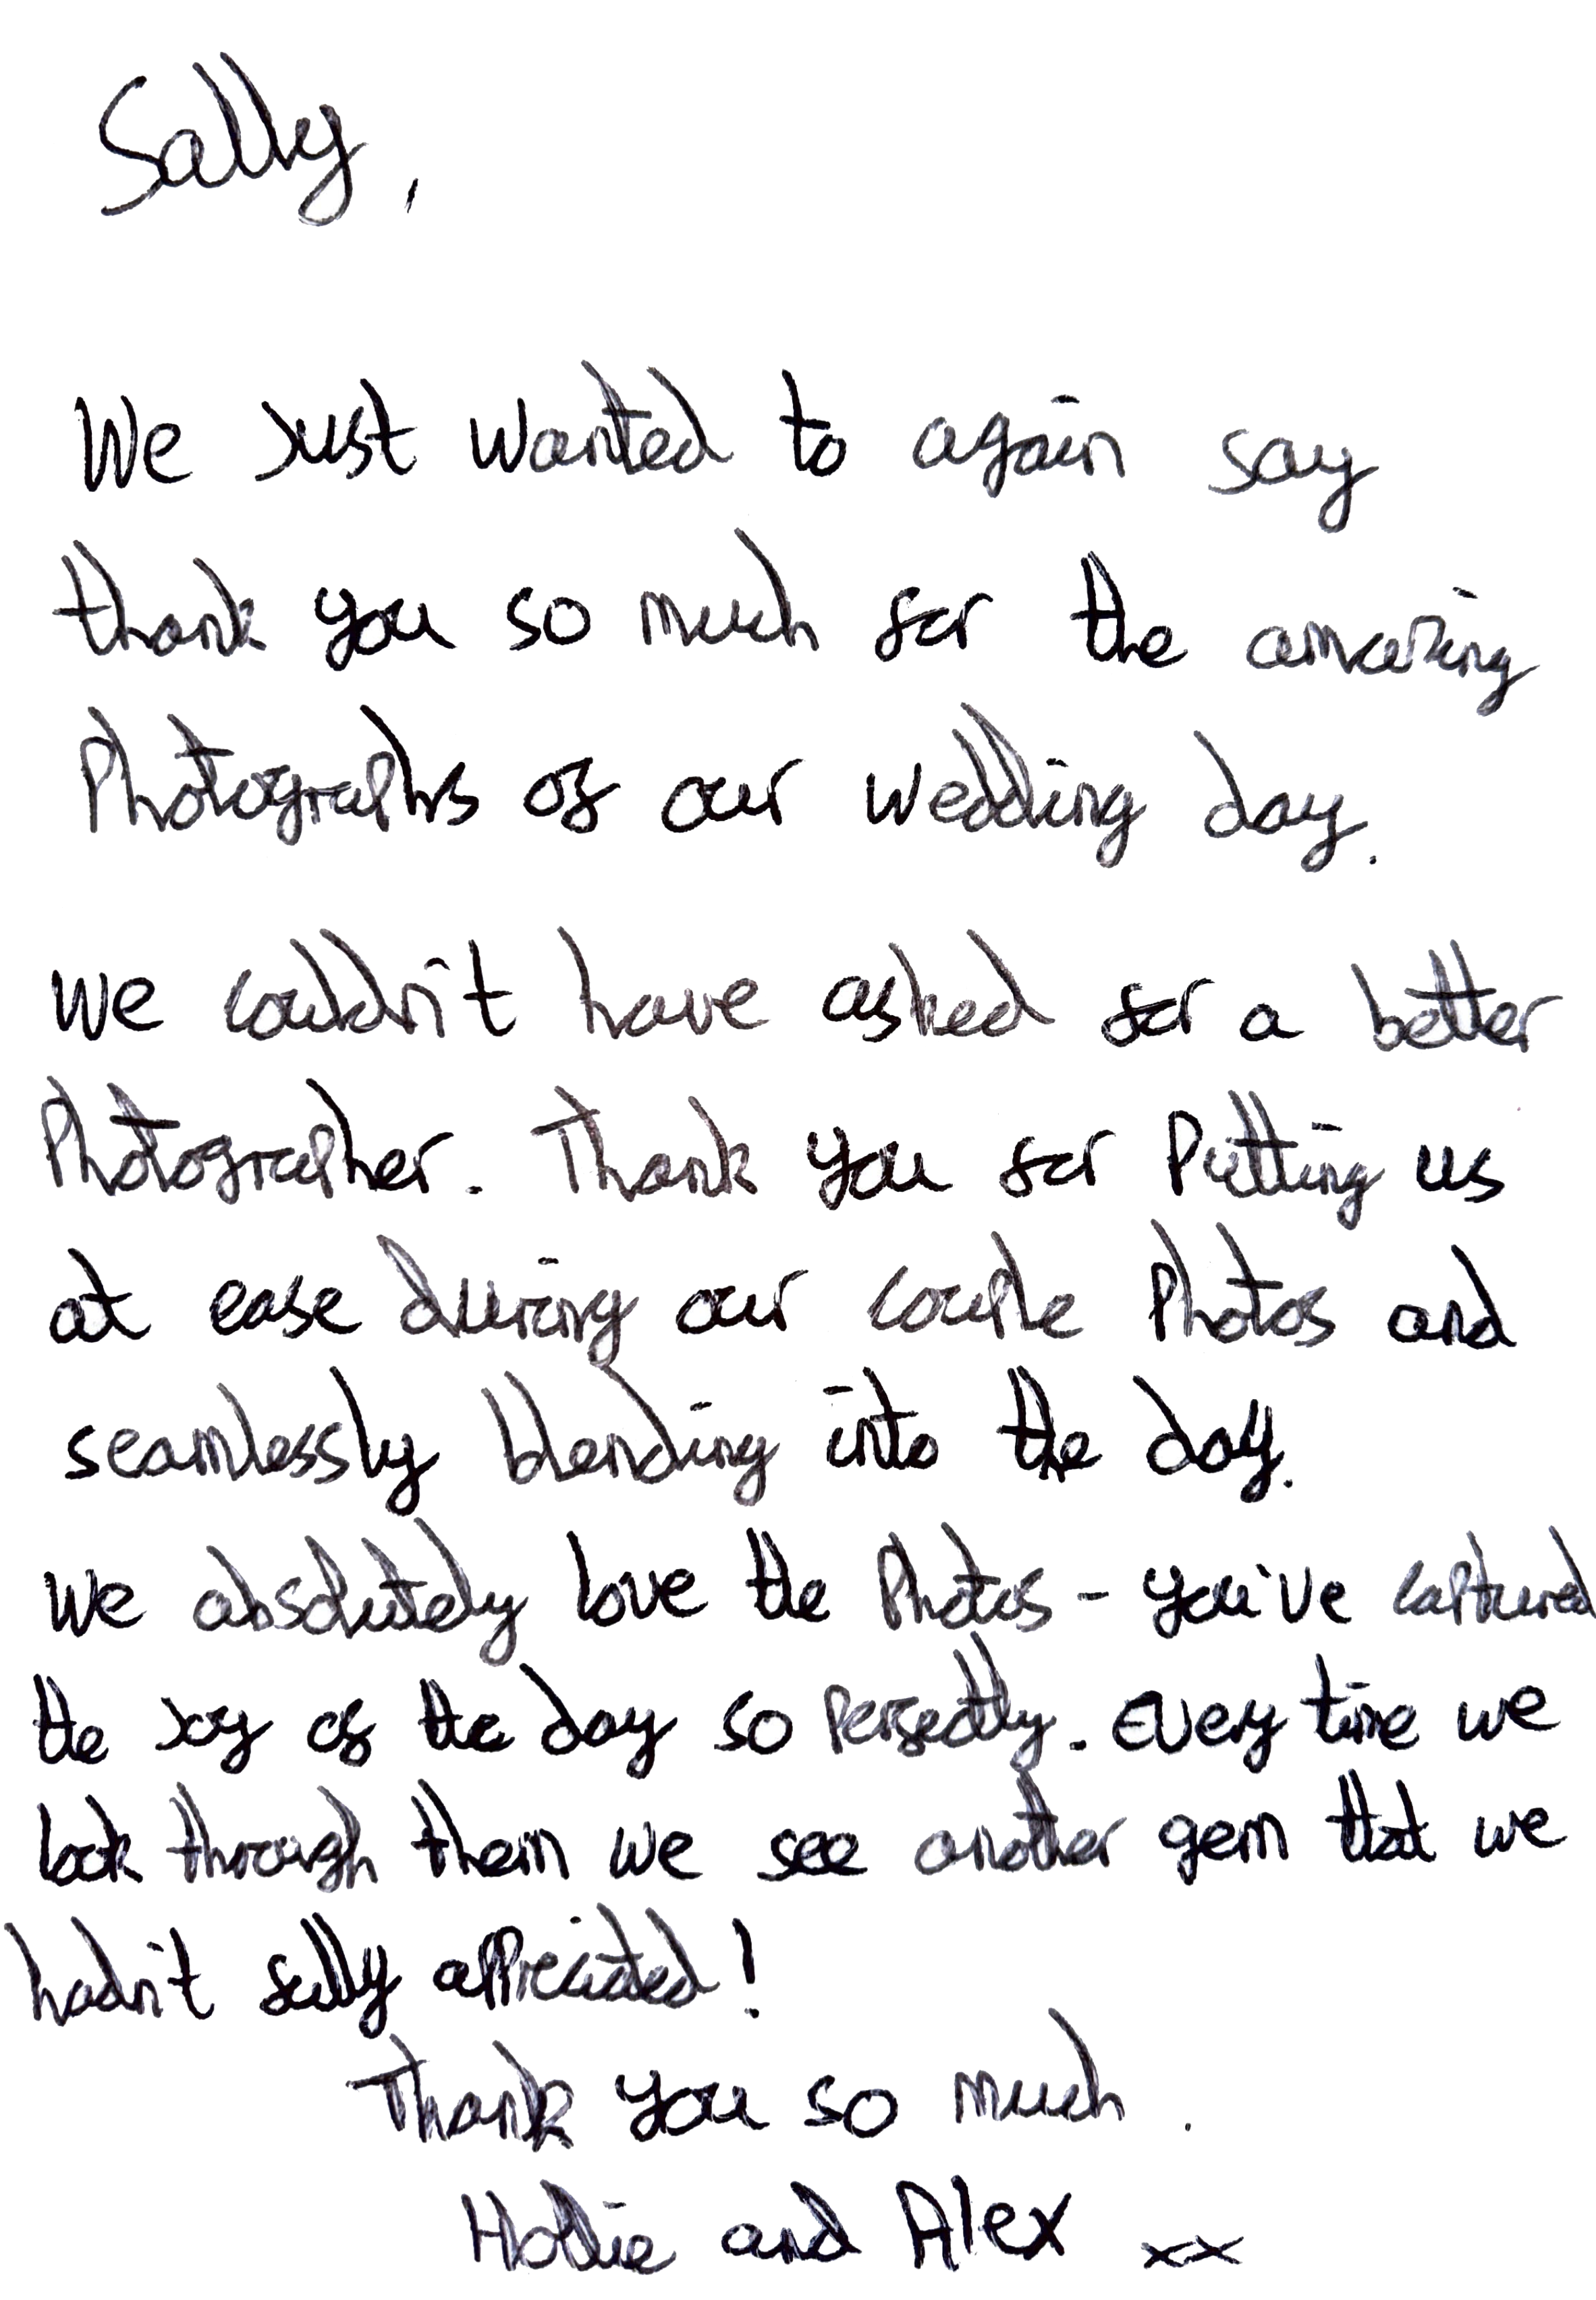 Sally,
We Just wanted to again say
thank you so much for the amazing
Photographs of our wedding day.
We couldn't have asked for a better
Photographer. Thank you for Putting us
at ease during our couple Photos and
seamlessly blending into the day.
We absolutely love the Photos - you've captured
the Joy of the day so Perfectly. Every time we
look through them we see another gem that we
hadn't fully appreciated!
Thank you so much.
Hollie and Alex xx